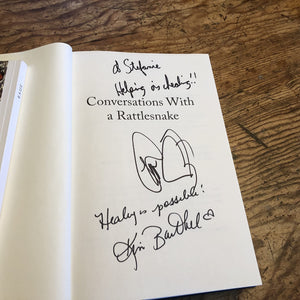 to Stefanie
Helping is healing!!
Conversations With
a Rattlesnake
Healing is possible!
Kim Barthel